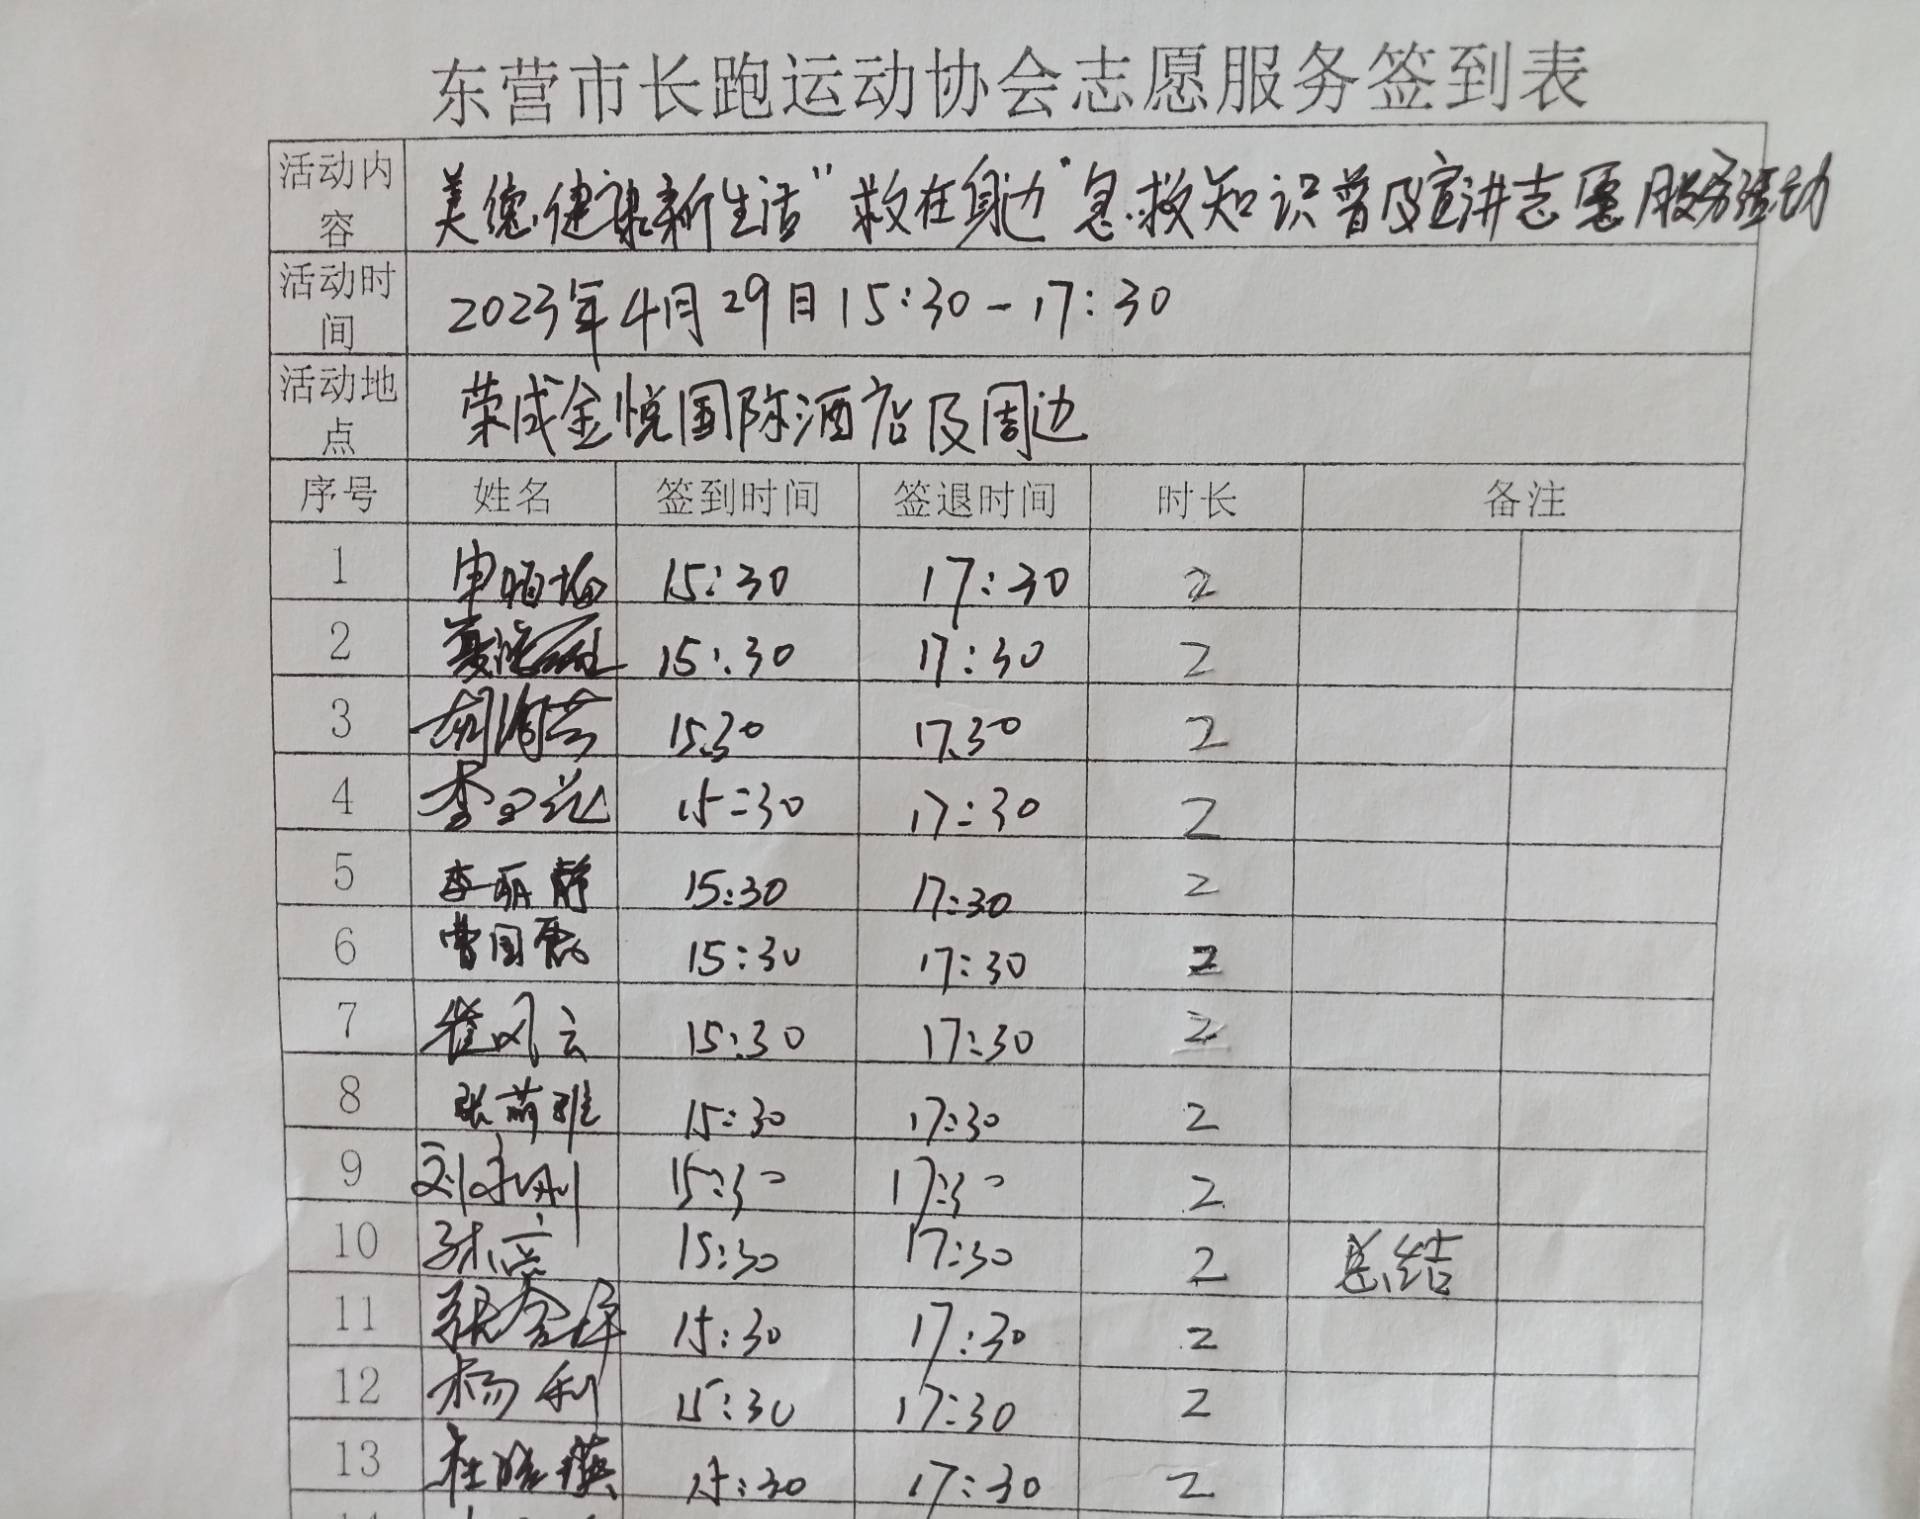 东营市长跑运动协会志愿服务签到表
活动内容 美德健康新生活"救在身边"急救知识普及宣讲志愿服务活动
活动时间 2023年4月29日15:30-17:30
活动地点 荣成金悦国际酒店及周边
序号 姓名 签到时间 签退时间 时长 备注
1 15:30 17:30 2
2 15:30 17:30 2
3 15:30 17:30 2
4 15:30 17:30 2
5 李丽静 15:30 17:30 2
6 曹国磊 15:30 17:30 2
7 崔风云 15:30 17:30 2
8 张萌雅 15:30 17:30 2
9 15:30 17:30 2
10 15:30 17:30 2 总结
11 15:30 17:30 2
12 杨利 15:30 17:30 2
13 15:30 17:30 2